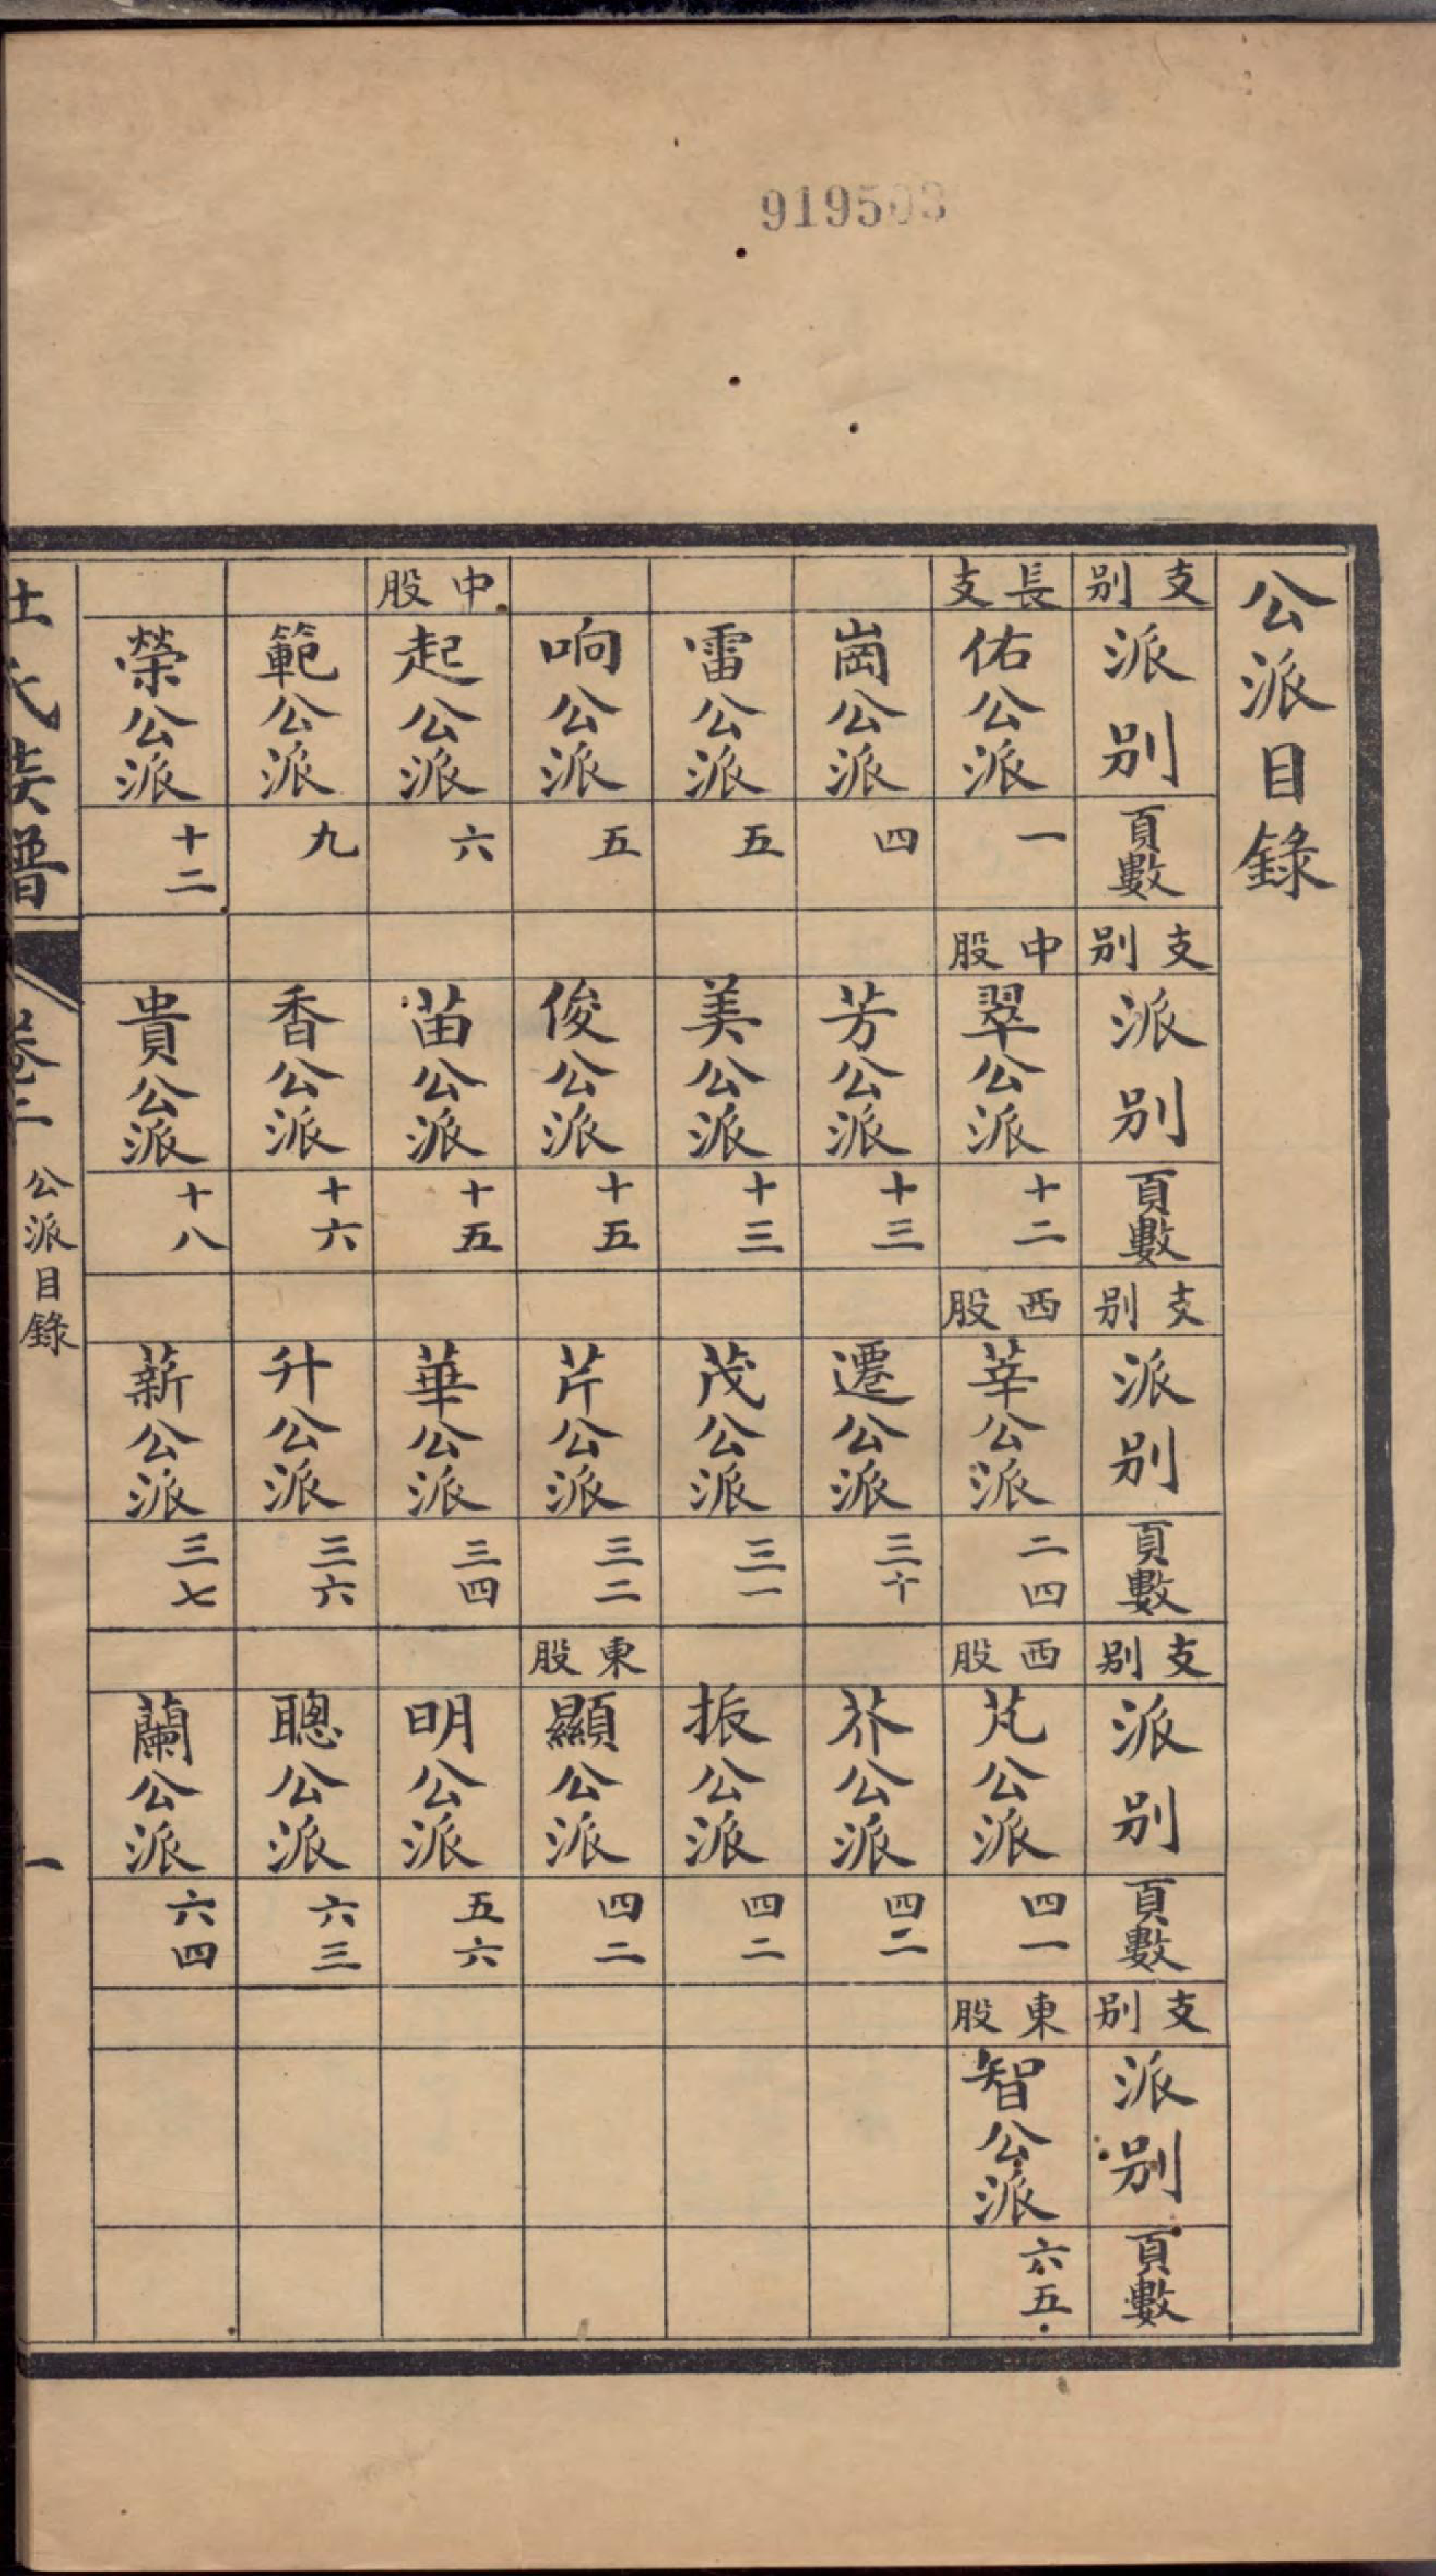 919503
公派目錄
支別 派別 頁數 支別 派別 頁數 支別 派別 頁數 支別 派別 頁數 支別 派別 頁數
長支 佑公派 一 中股 翠公派 十二 西股 莘公派 二四 西股 芃公派 四一 東股 智公派 六五
崗公派 四 芳公派 十三 遷公派 三十 芥公派 四二
雷公派 五 美公派 十三 茂公派 三一 振公派 四二
响公派 五 俊公派 十五 芹公派 三二 東股 顯公派 四二
中股 起公派 六 苗公派 十五 華公派 三四 明公派 五六
範公派 九 香公派 十六 升公派 三六 聰公派 六三
榮公派 十二 貴公派 十八 薪公派 三七 蘭公派 六四
氏族譜 卷二 公派目錄 一